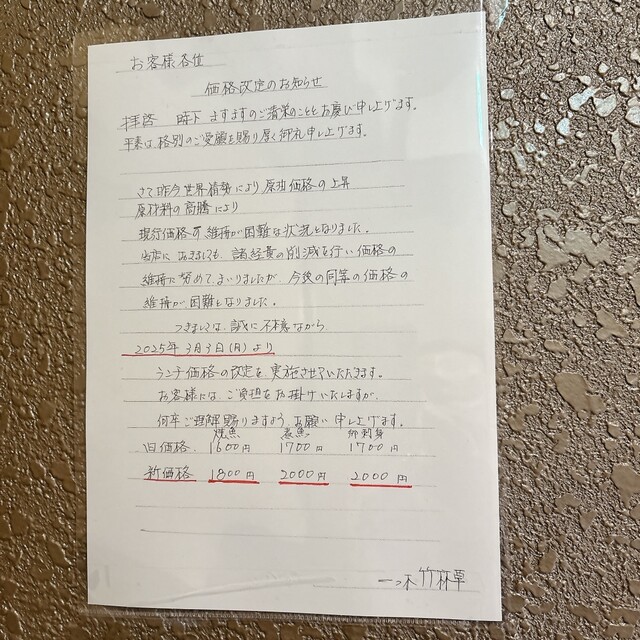 お客様各位
価格改定のお知らせ
拝啓 時下ますますのご清栄のこととお慶び申し上げます。
平素は、格別のご愛顧を賜り厚く御礼申し上げます。
さて昨今世界情勢により原油価格の上昇
原材料の高騰により
現行価格の維持が困難な状況となりました。
当店におきましても、諸経費の削減を行い価格の
維持に努めてまいりましたが、今後の同等の価格の
維持が困難となりました。
つきましては、誠に不本意ながら
2025年3月3日(月)より
ランチ価格の改定を実施させていただきます。
お客様には、ご負担をお掛けいたしますが、
何卒ご理解賜りますよう、お願い申し上げます。
焼魚 煮魚 御刺身
旧価格 1600円 1700円 1700円
新価格 1800円 2000円 2000円
一っ木 竹